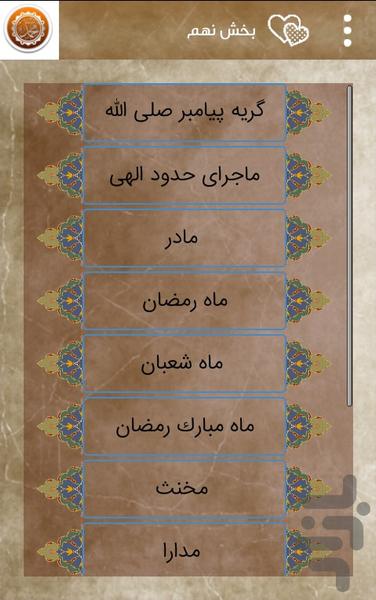 بخش نهم
گریه پیامبر صلی الله
ماجرای حدود الهی
مادر
ماه رمضان
ماه شعبان
ماه مبارك رمضان
مخنث
مدارا
بازار